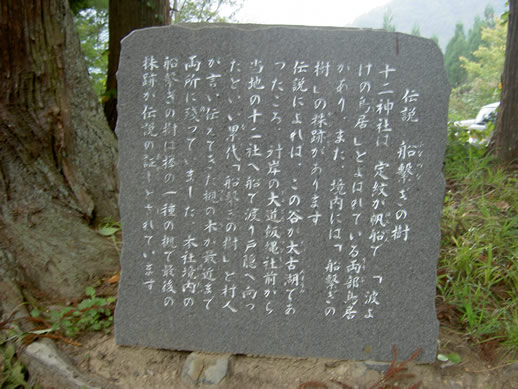 伝説 船繋ぎの樹
十二神社は 定紋が帆船で 「波よ
けの鳥居」とよばれている両部鳥居
があり また 境内には「船繋ぎの
樹」の株跡があります
伝説によれば この谷が太古湖であ
つたころ 対岸の大道飯縄社前から
当地の十二社へ船で渡り戸隠へ向つ
たといい累代「船繋ぎの樹」と村人
が言い伝えてきた槻の木が最近まで
両所に残つていました 本社境内の
船繋ぎの樹は欅の一種の槻で最後の
株跡が伝説の証しとされています